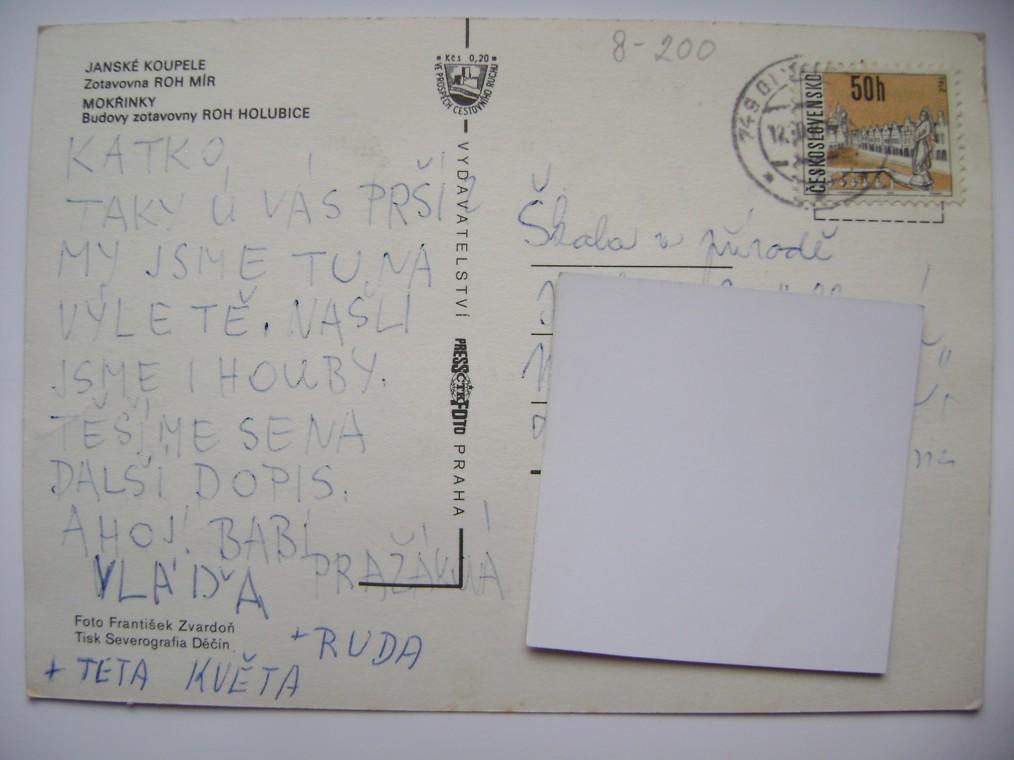 JANSKÉ KOUPELE
Zotavovna ROH MÍR
MOKŘINKY
Budovy zotavovny ROH HOLUBICE
KATKO,
TAKY U VÁS PRŠÍ?
MY JSME TU NA
VÝLETĚ. NAŠLI
JSME I HOUBY.
TĚŠÍME SE NA
DALŠÍ DOPIS.
AHOJ! BABÍ
PRAŽÁKOVÁ
VLÁĎA
+ RUDA
+ TETA KVĚTA
Foto František Zvardoň
Tisk Severografia Děčín
Kčs 0,20
VE PROSPĚCH CESTOVNÍHO RUCHU
VYDAVATELSTVÍ
PRESSFOTO
ČTK
PRAHA
8-200
749 01
ČESKOSLOVENSKO
50h
Škola v přírodě